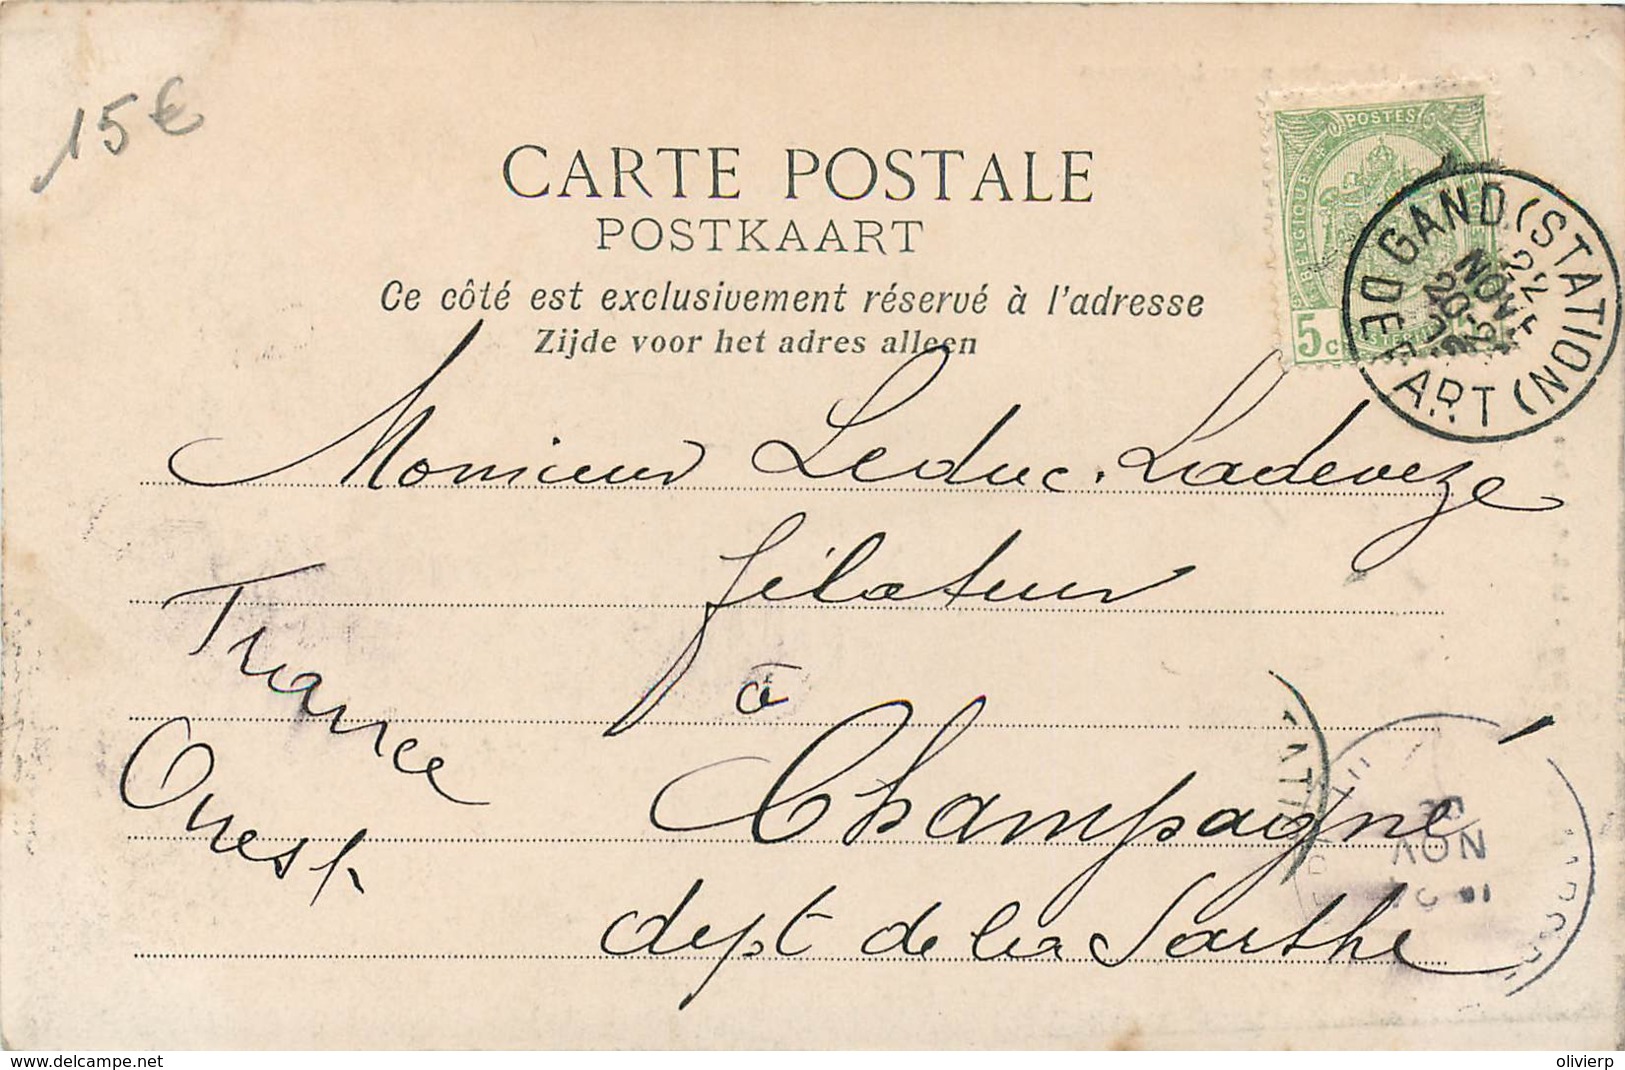 15€
CARTE POSTALE
POSTKAART
Ce côté est exclusivement réservé à l'adresse
Zijde voor het adres alleen
POSTES
BELGIQUE
5 c
GAND (STATION)
DEPART
22
NOV
Monsieur Leduc. Ladeveze
filateur
à
Champagné
dept de la Sarthe
France
Ouest
NOV
www.delcampe.net
olivierp